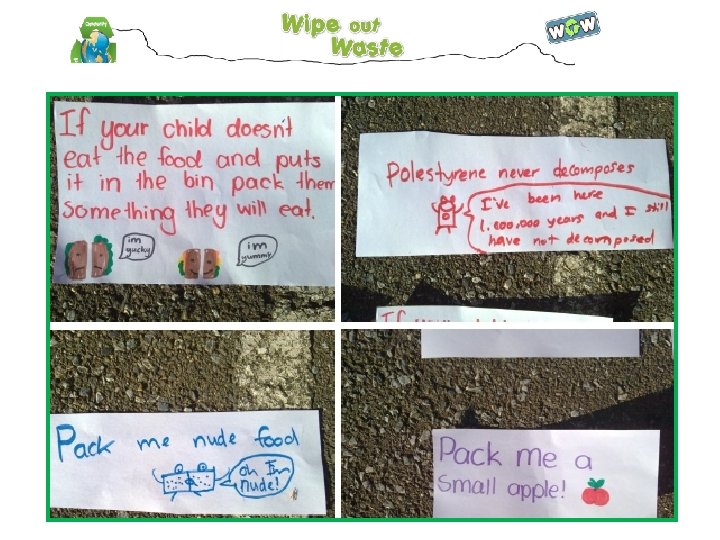 Community
Wipe out
Waste
WOW
If your child doesn't
eat the food and puts
it in the bin pack them
something they will eat.
im
yucky
im
yummy
Polestyrene never decomposes
I've been here
1,000,000 years and I still
have not decomposed
If
Pack me nude food
oh Im
nude!
Pack me a
Small apple!